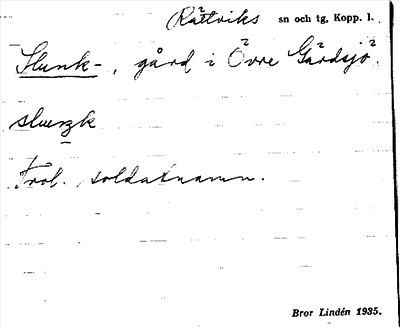 Rättviks sn och tg, Kopp. l.
Slunk-, gård i Övre Gärdsjö.
sluŋk
Trol. soldatnamn.
Bror Lindén 1935.